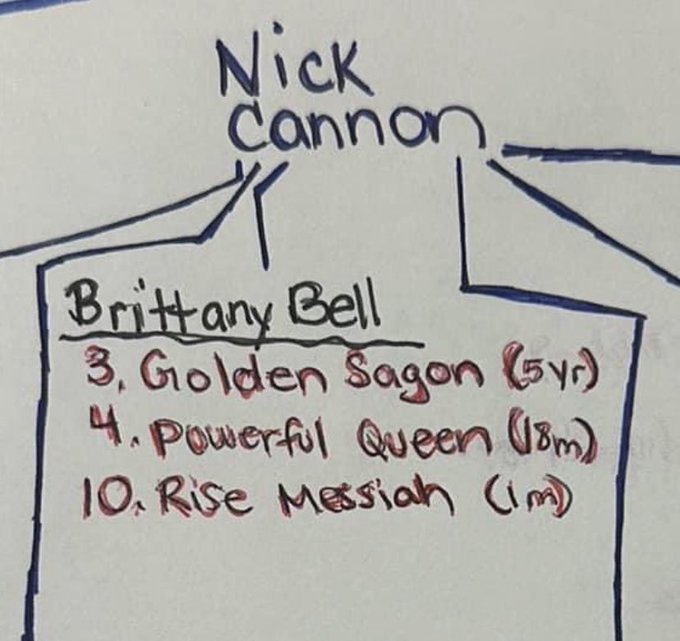 Nick
Cannon
Brittany Bell
3. Golden Sagon (5yr)
4. Powerful Queen (18m)
10. Rise Messiah (1m)